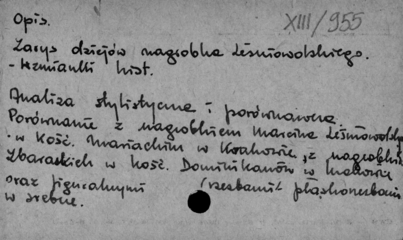 Opis.
XIII/955
Zarys dziejów nagrobka Leśniowolskiego.
- wzmianki hist.
Analiza stylistyczna i porównawcza.
Porównanie z nagrobkiem Marcina Leśniowolskiego
w kość. Mariackim w Krakowie, z nagrobkiem
Zbaraskich w kość. Dominikanów w Krakowie
oraz figuralnymi (rzeźbami płaskorzeźbami
w srebrze.